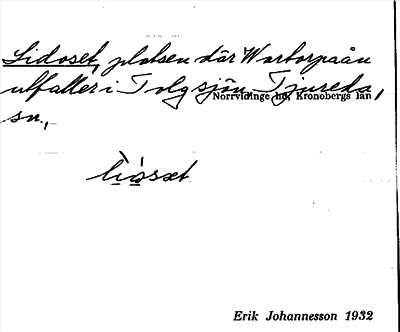 Lidoset, platsen där Wartorpaån
utfaller i Tolgsjön, Tjureda,
Norrvidinge hd, Kronobergs län
sn.,
lìósət
Erik Johannesson 1932